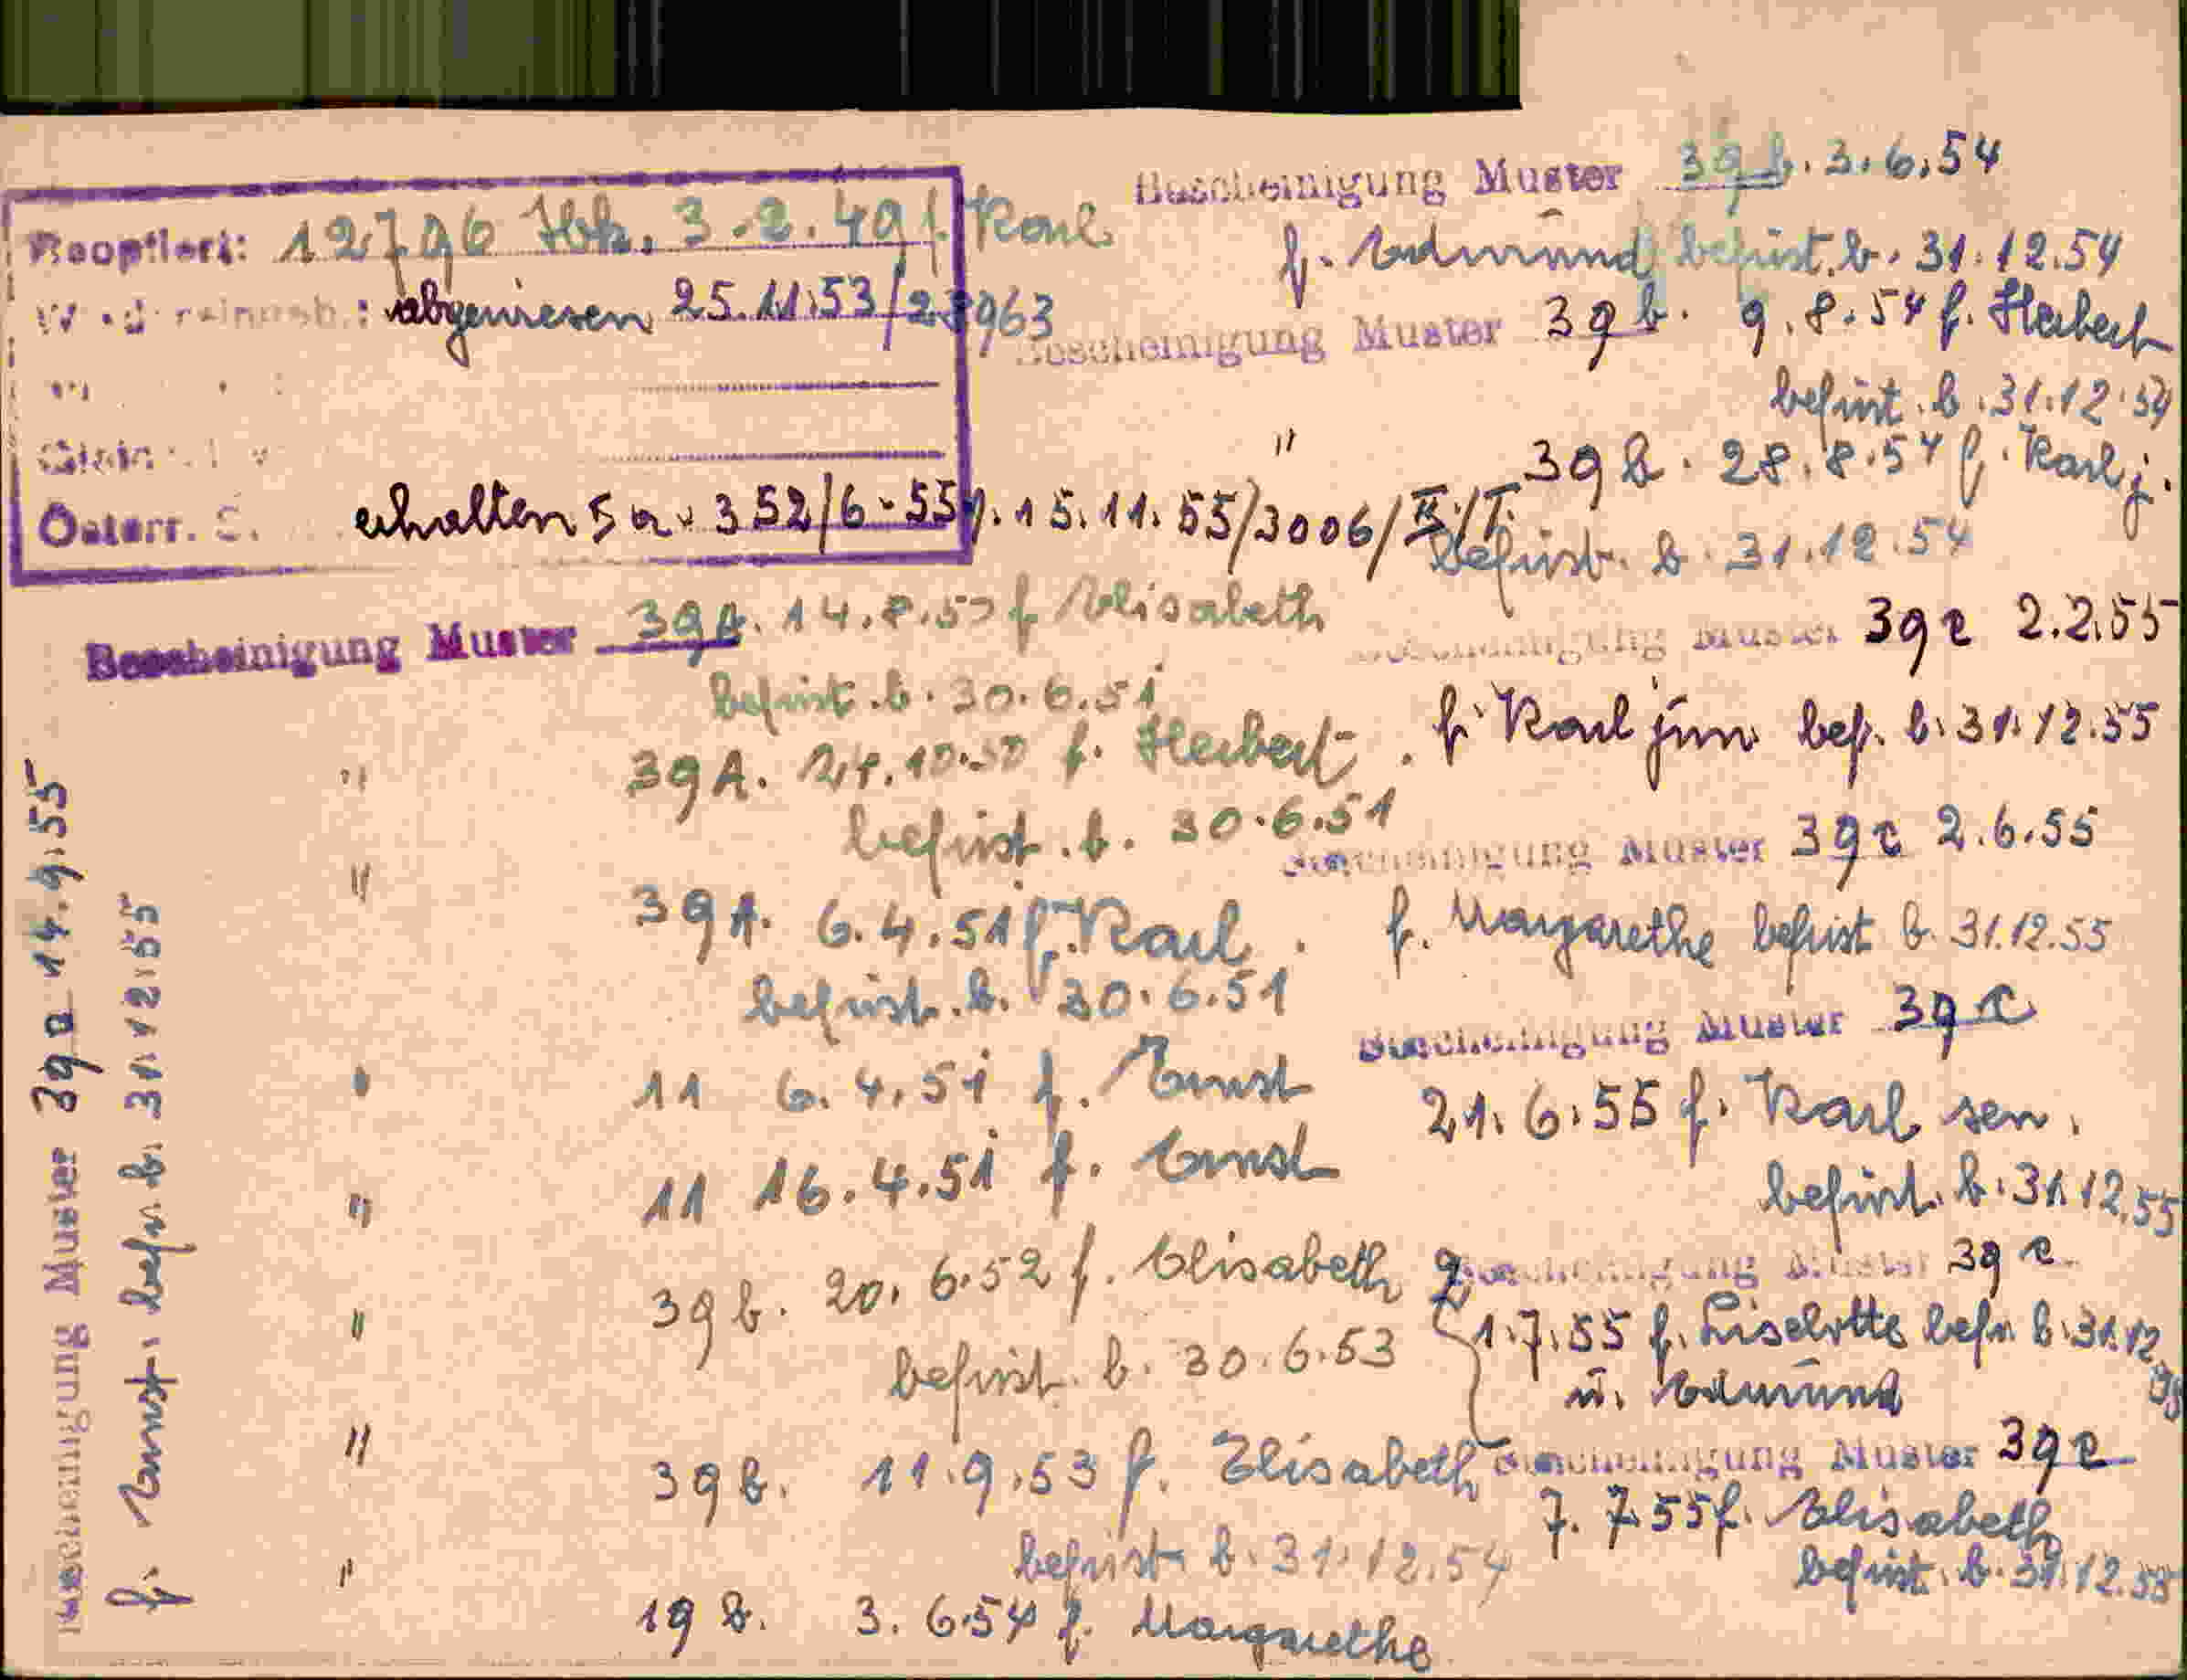 Reoptiert: 12796 Ibk. 3.2.49 f. Karl
abgewiesen 25.11.53/23963
Österr. S. erhalten 5a. 352/6-55 f. 15.11.55/3006/II/I.
Bescheinigung Muster 39A. 14.8.50 f Elisabeth
befrist. b. 30.6.51
" 39A. 24.10.50 f. Herbert
befrist. b. 30.6.51
" 39A. 6.4.51 f. Karl
befrist. b. 30.6.51
" 11 6.4.51 f. Ernst
" 11 16.4.51 f. Ernst
" 39b. 20.6.52 f. Elisabeth
befrist. b. 30.6.53
" 39b. 11.9.53 f. Elisabeth
befrist. b. 31.12.54
" 19b. 3.6.54 f. Margarethe
Bescheinigung Muster 39b. 3.6.54
f. Edmund befrist. b. 31.12.54
Bescheinigung Muster 39b. 9.8.54 f. Herbert
befrist. b. 31.12.54
" 39b. 28.8.54 f. Karl j.
befrist. b. 31.12.54
Bescheinigung Muster 39c 2.2.55
f. Karl jun bef. b. 31.12.55
Bescheinigung Muster 39c 2.6.55
f. Margarethe befrist b. 31.12.55
Bescheinigung Muster 39c
21.6.55 f. Karl sen.
befrist. b. 31.12.55
Bescheinigung Muster 39c
1.7.55 f. Liselotte befr. b. 31.12.55
u. Edmund
Bescheinigung Muster 39c
7.7.55 f. Elisabeth
befrist. b. 31.12.55
Bescheinigung Muster 39a 14.9.55
f. Ernst. befr. b. 31.12.55